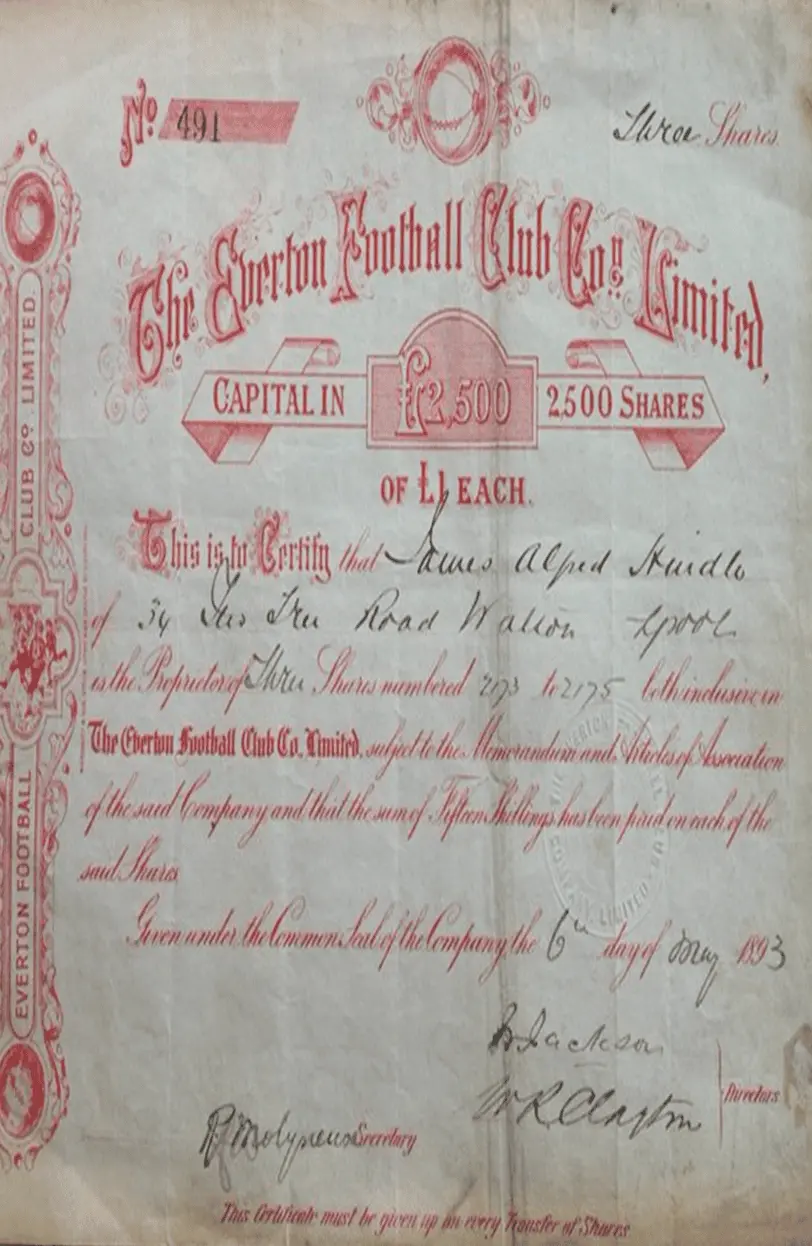 No 491
Three Shares
The Everton Football Club Coy. Limited,
CAPITAL IN £2,500 2,500 SHARES
OF £1 EACH.
This is to Certify that James Alfred Hindle
of 34 Tree Road Walton Lpool
is the Proprietor of Three Shares numbered 2173 to 2175 both inclusive in
The Everton Football Club Co. Limited, subject to the Memorandum and Articles of Association
of the said Company and that the sum of Fifteen Shillings has been paid on each of the
said Shares
Given under the Common Seal of the Company the 6th day of May 1893
Jackson
W R Clayton
Directors
R Molyneux Secretary
This Certificate must be given up on every Transfer of Shares
EVERTON FOOTBALL CLUB Co. LIMITED.